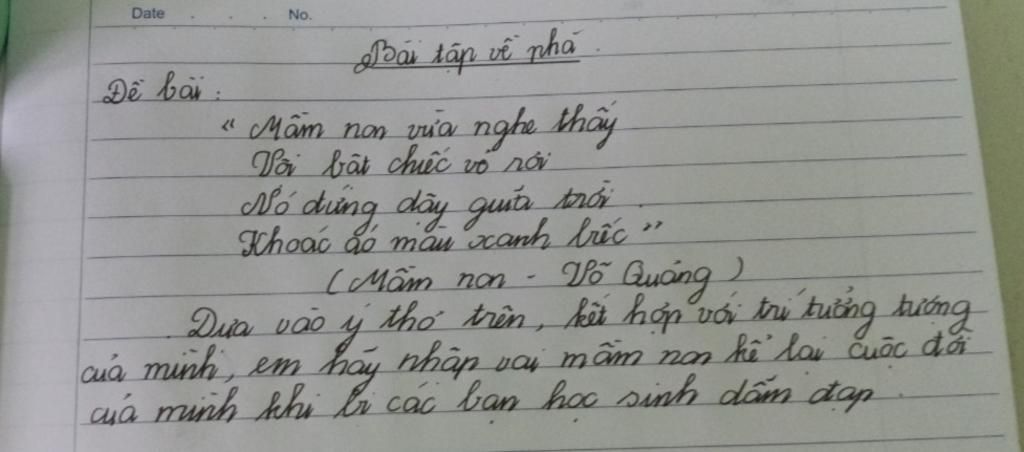 Date . . . No.
Bài tập về nhà.
Đề bài:
"Mầm non vừa nghe thấy
Vội bật chiếc vỏ rơi
Nó đứng dậy giữa trời
Khoác áo màu xanh biếc"
(Mầm non - Võ Quảng)
Dựa vào ý thơ trên, kết hợp với trí tưởng tượng
của mình, em hãy nhập vai mầm non kể lại cuộc đời
của mình khi bị các bạn học sinh dẫm đạp.